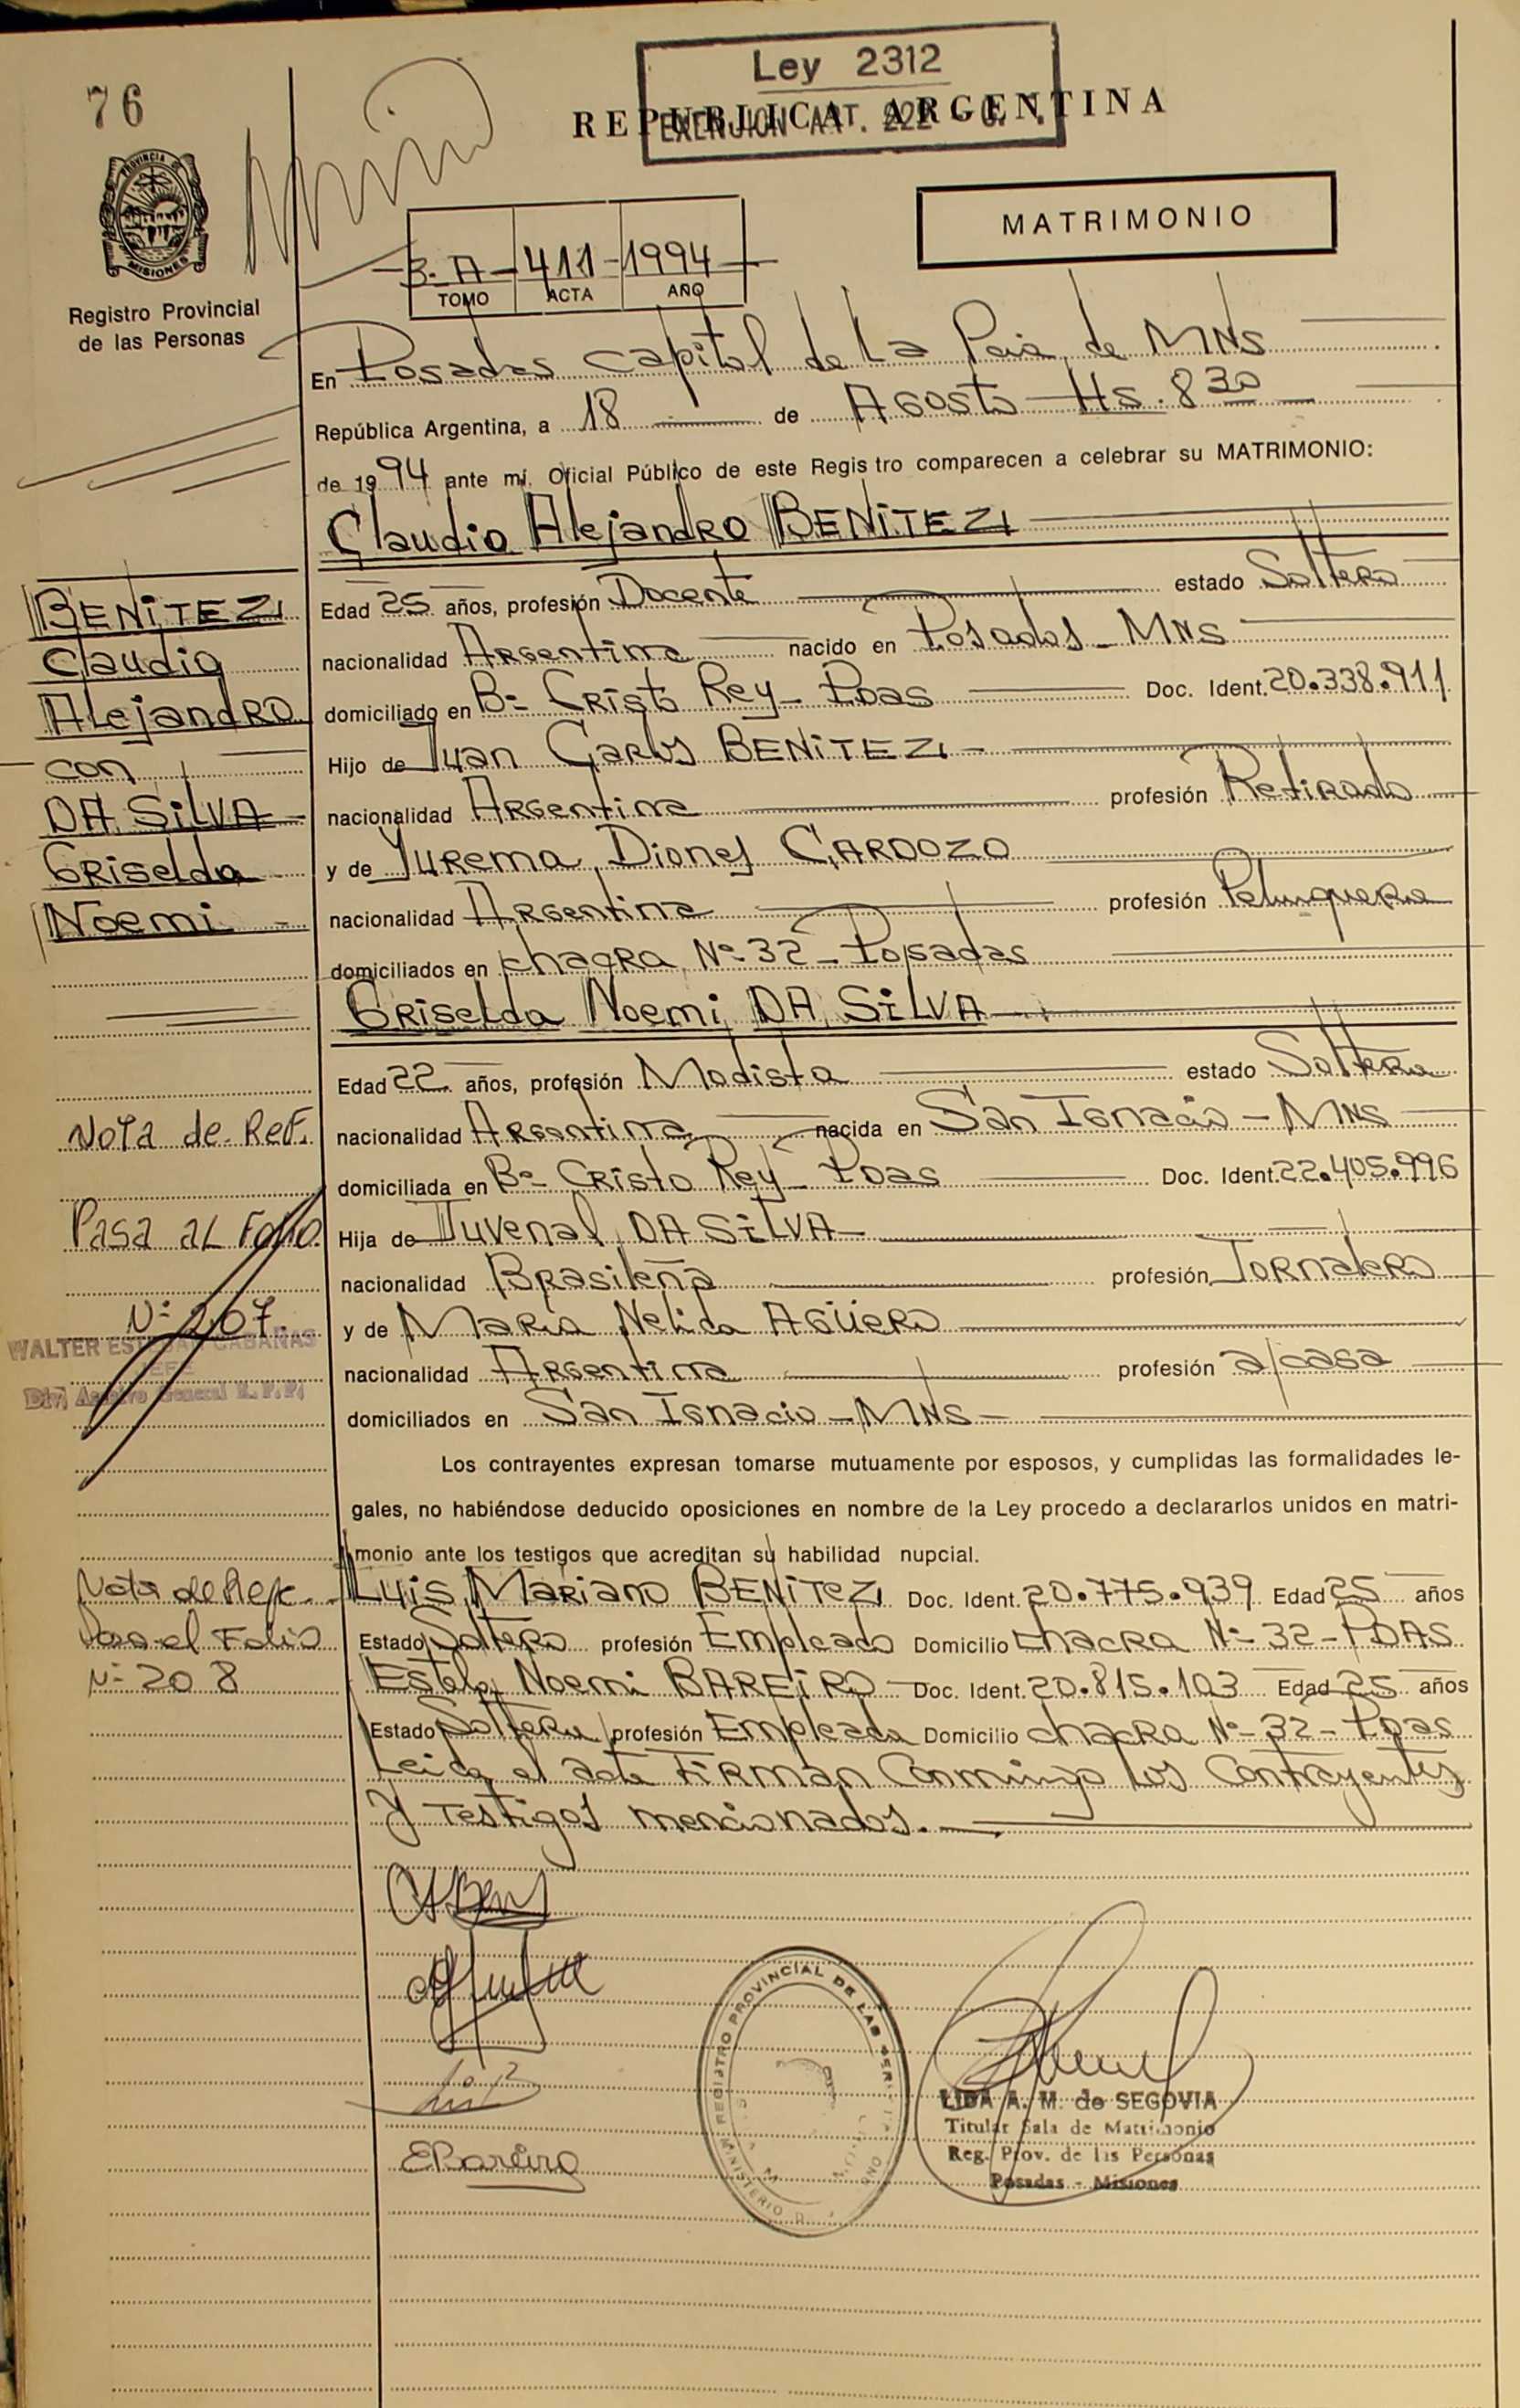 76
Ley 2312
REPUBLICA ARGENTINA
EXENSION ART. 222
PROVINCIA DE
MISIONES
Registro Provincial
de las Personas
MATRIMONIO
3-A-411-1994
TOMO ACTA AÑO
En Posadas Capital de La Pcia de MNS
República Argentina, a 18 de Agosto Hs. 8 30
de 1994 ante mí, Oficial Público de este Registro comparecen a celebrar su MATRIMONIO:
Claudio Alejandro BENITEZ
Edad 25 años, profesión Docente estado Soltero
nacionalidad Argentina nacido en Posadas - MNS
domiciliado en Bº Cristo Rey - Pdas Doc. Ident. 20.338.911
Hijo de Juan Carlos BENITEZ -
nacionalidad Argentina profesión Retirado
y de Yurema Diones CARDOZO
nacionalidad Argentina profesión Peluquera
domiciliados en chacra Nº 32 - Posadas
Griselda Noemi DA SILVA
Edad 22 años, profesión Modista estado Soltera
nacionalidad Argentina nacida en San Ignacio - MNS
domiciliada en Bº Cristo Rey - Pdas Doc. Ident. 22.405.996
Hija de Juvenal DA SILVA
nacionalidad Brasileña profesión Jornalero
y de Maria Nelida AGÜERO
nacionalidad Argentina profesión a/casa
domiciliados en San Ignacio - MNS -
Los contrayentes expresan tomarse mutuamente por esposos, y cumplidas las formalidades le-
gales, no habiéndose deducido oposiciones en nombre de la Ley procedo a declararlos unidos en matri-
monio ante los testigos que acreditan su habilidad nupcial.
Luis Mariano BENITEZ Doc. Ident. 20.775.939 Edad 25 años
Estado Soltero profesión Empleado Domicilio chacra Nº 32 - PDAS
Estela Noemi BAREIRO Doc. Ident. 20.815.103 Edad 25 años
Estado Soltera profesión Empleada Domicilio chacra Nº 32 - Pdas
Leida el acta FIRMAN Conmigo los Contrayentes
y Testigos mencionados.
BENITEZ
Claudio
Alejandro
con
DA SILVA
Griselda
Noemi
Nota de Ref.
Pasa al Folio
Nº 207.
WALTER ESTEBAN CABAÑAS
JEFE
Div. Archivo General R.P.P.
Nota de Ref.
Pasa al Folio
Nº 208
EBareiro
REGISTRO PROVINCIAL DE LAS PER
MINISTERIO
LIDA A. M. de SEGOVIA
Titular Sala de Matrimonio
Reg. Prov. de las Personas
Posadas - Misiones